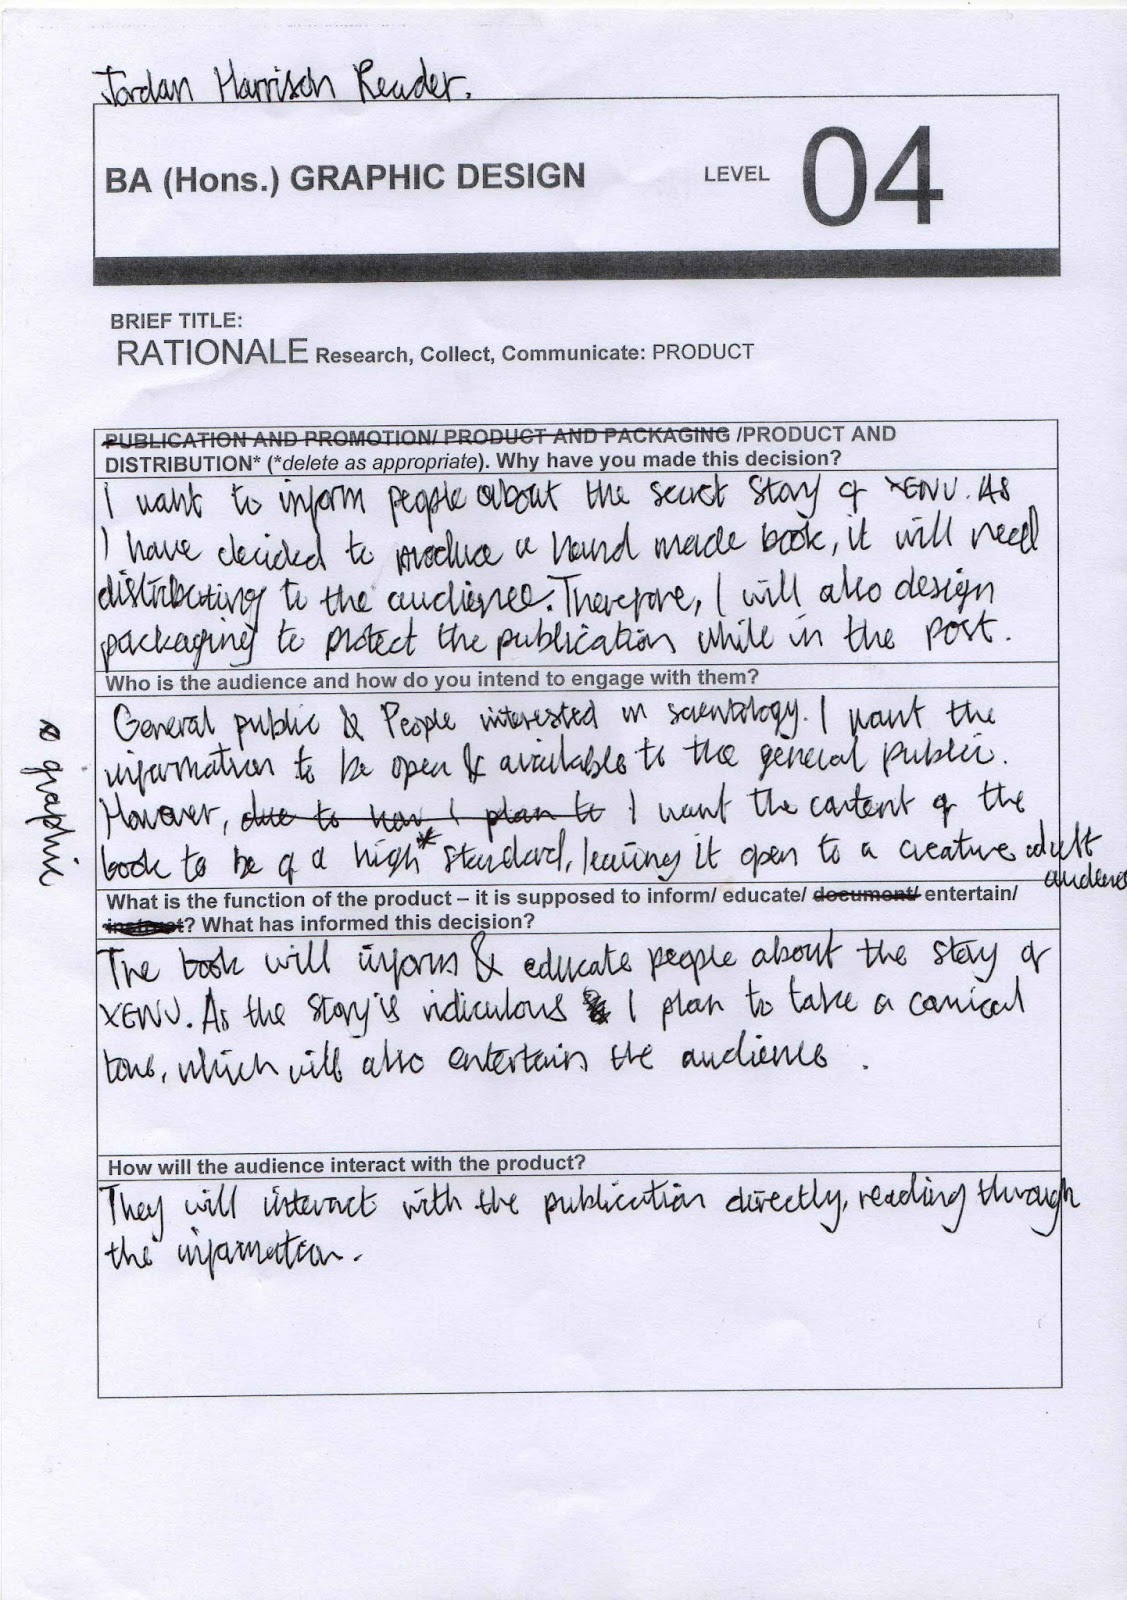 Jordan Harrison Reader.
BA (Hons.) GRAPHIC DESIGN LEVEL 04
BRIEF TITLE:
RATIONALE Research, Collect, Communicate: PRODUCT
PUBLICATION AND PROMOTION/ PRODUCT AND PACKAGING /PRODUCT AND
DISTRIBUTION* (*delete as appropriate). Why have you made this decision?
I want to inform people about the secret story of XENU. As
I have decided to produce a hand made book, it will need
distributing to the audience. Therefore, I will also design
packaging to protect the publication while in the post.
Who is the audience and how do you intend to engage with them?
General public & People interested in scientology. I want the
information to be open & available to the general public.
However, due to how I plan to I want the content of the
book to be of a high* standard, leaving it open to a creative adult
audience
* graphic
What is the function of the product – it is supposed to inform/ educate/ document/ entertain/
instruct? What has informed this decision?
The book will inform & educate people about the story of
XENU. As the story is ridiculous I plan to take a comical
tone, which will also entertain the audience.
How will the audience interact with the product?
They will interact with the publication directly, reading through
the information.